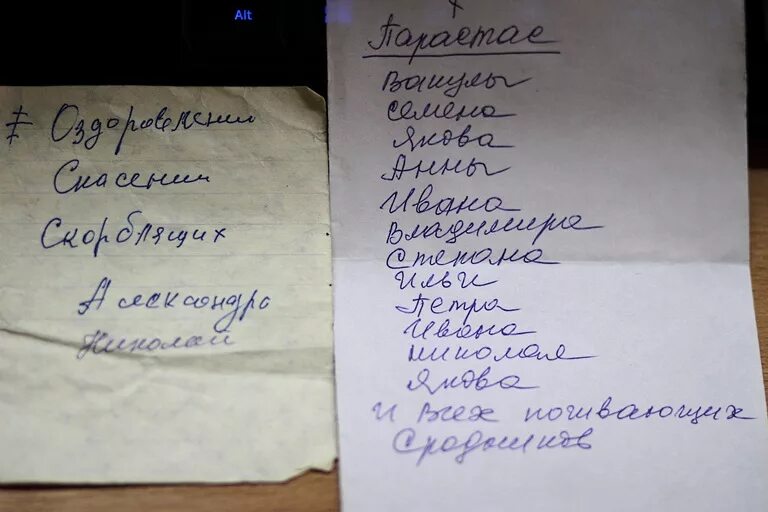 Alt
Оздоровлении
Спасении
Скорблящих
Александра
Николай
Парастас
Вакулы
Семена
Якова
Анны
Ивана
Владимира
Степана
Ильи
Петра
Ивана
Николая
Якова
И Всех почивающих
Сродников